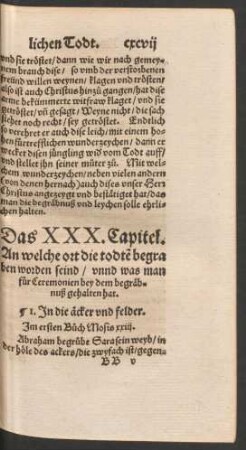 lichen Todt. cxcvij
vnd sie tröstet/dann wie wir nach gemey-
nem brauch dise/ so vmb der verstorbenen
freünd willen weynen/klagen vnd trösten/
also ist auch Christus hinzů gangen/hat dise
arme bekümmerte witfraw klaget/vnd sie
getröstet/vñ gesagt/Weyne nicht/die sach
stehet noch recht/sey getröstet. Endtlich
so verehret er auch dise leich/mit einem ho-
hen fürtrefflichen wunderzeychen/dann er
wecket disen jüngling wid vom Todt auff/
vnd stellet jhn seiner můter zů. Mit wel-
chem wunderzeychen/neben vielen andern
(von denen hernach) auch dises vnser Herr
Christus angezeygt vnd bestätiget hat/das
man die begräbnuß vnd leychen solle ehrli-
chen halten.
Das XXX. Capitel.
An welche ort die todtẽ begra
ben worden seind/ vnnd was man
für Ceremonien bey dem begräb-
nuß gehalten hat.
¶ 1. In die äcker vnd felder.
Im ersten Bůch Mosis xxiij.
Abraham begrůbe Sara sein weyb/in
der höle des ackers/die zwyfach ist/gegen
BB v